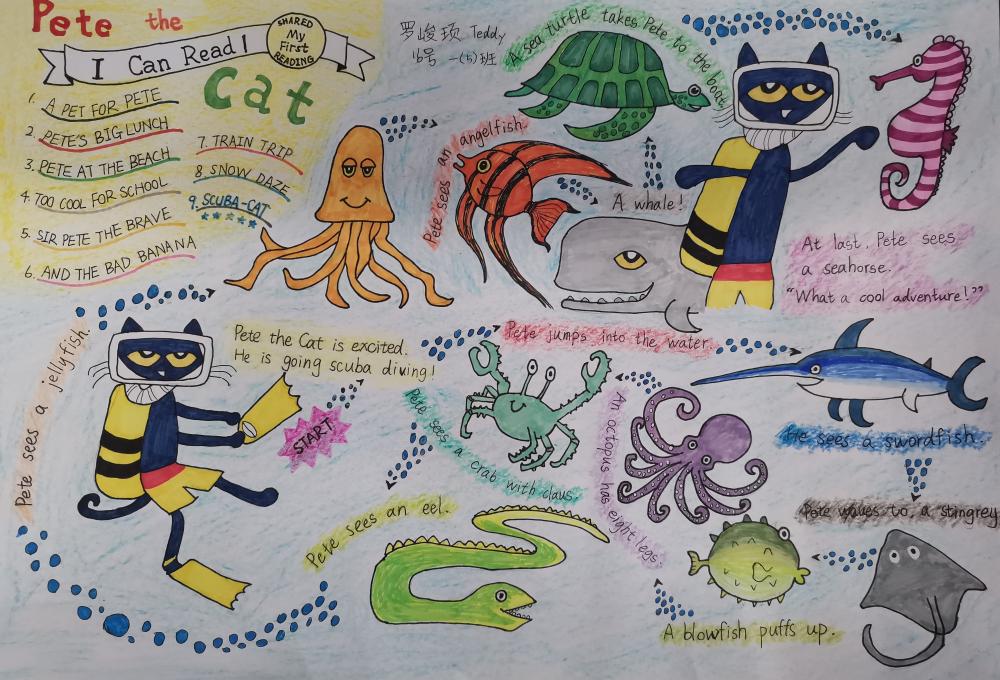 Pete the
Cat
I Can Read!
SHARED
My
First
READING
1. A PET FOR PETE
2. PETE'S BIG LUNCH
3. PETE AT THE BEACH
4. TOO COOL FOR SCHOOL
5. SIR PETE THE BRAVE
6. AND THE BAD BANANA
7. TRAIN TRIP
8 SNOW DAZE
9. SCUBA-CAT
罗峻顼 Teddy
16号 一(5)班
START
Pete the Cat is excited.
He is going scuba diving!
Pete jumps into the water.
He sees a swordfish.
Pete waves to a stingrey
A blowfish puffs up.
An octopus has eight legs.
Pete sees a crab with claws.
Pete sees an eel.
Pete sees a jellyfish.
Pete sees an angelfish.
A whale!
A sea turtle takes Pete to the boat.
At last, Pete sees
a seahorse.
"What a cool adventure!"